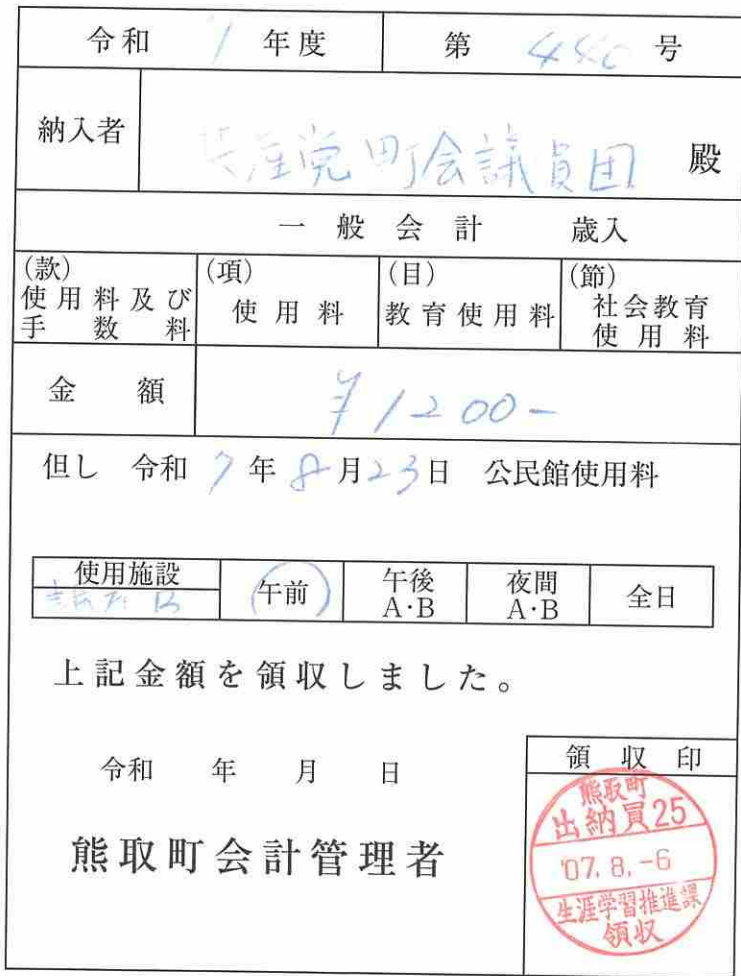 令和 7 年度 第 440 号
納入者 党町会議員団 殿
一般会計 歳入
(款) 使用料及び手数料
(項) 使用料
(目) 教育使用料
(節) 社会教育使用料
金額 ¥1200-
但し 令和 7 年 8 月 23 日 公民館使用料
使用施設 午前 午後 A・B 夜間 A・B 全日
B
上記金額を領収しました。
令和 年 月 日
領収印
熊取町会計管理者
熊取町
出納員25
'07.8.-6
生涯学習推進課
領収